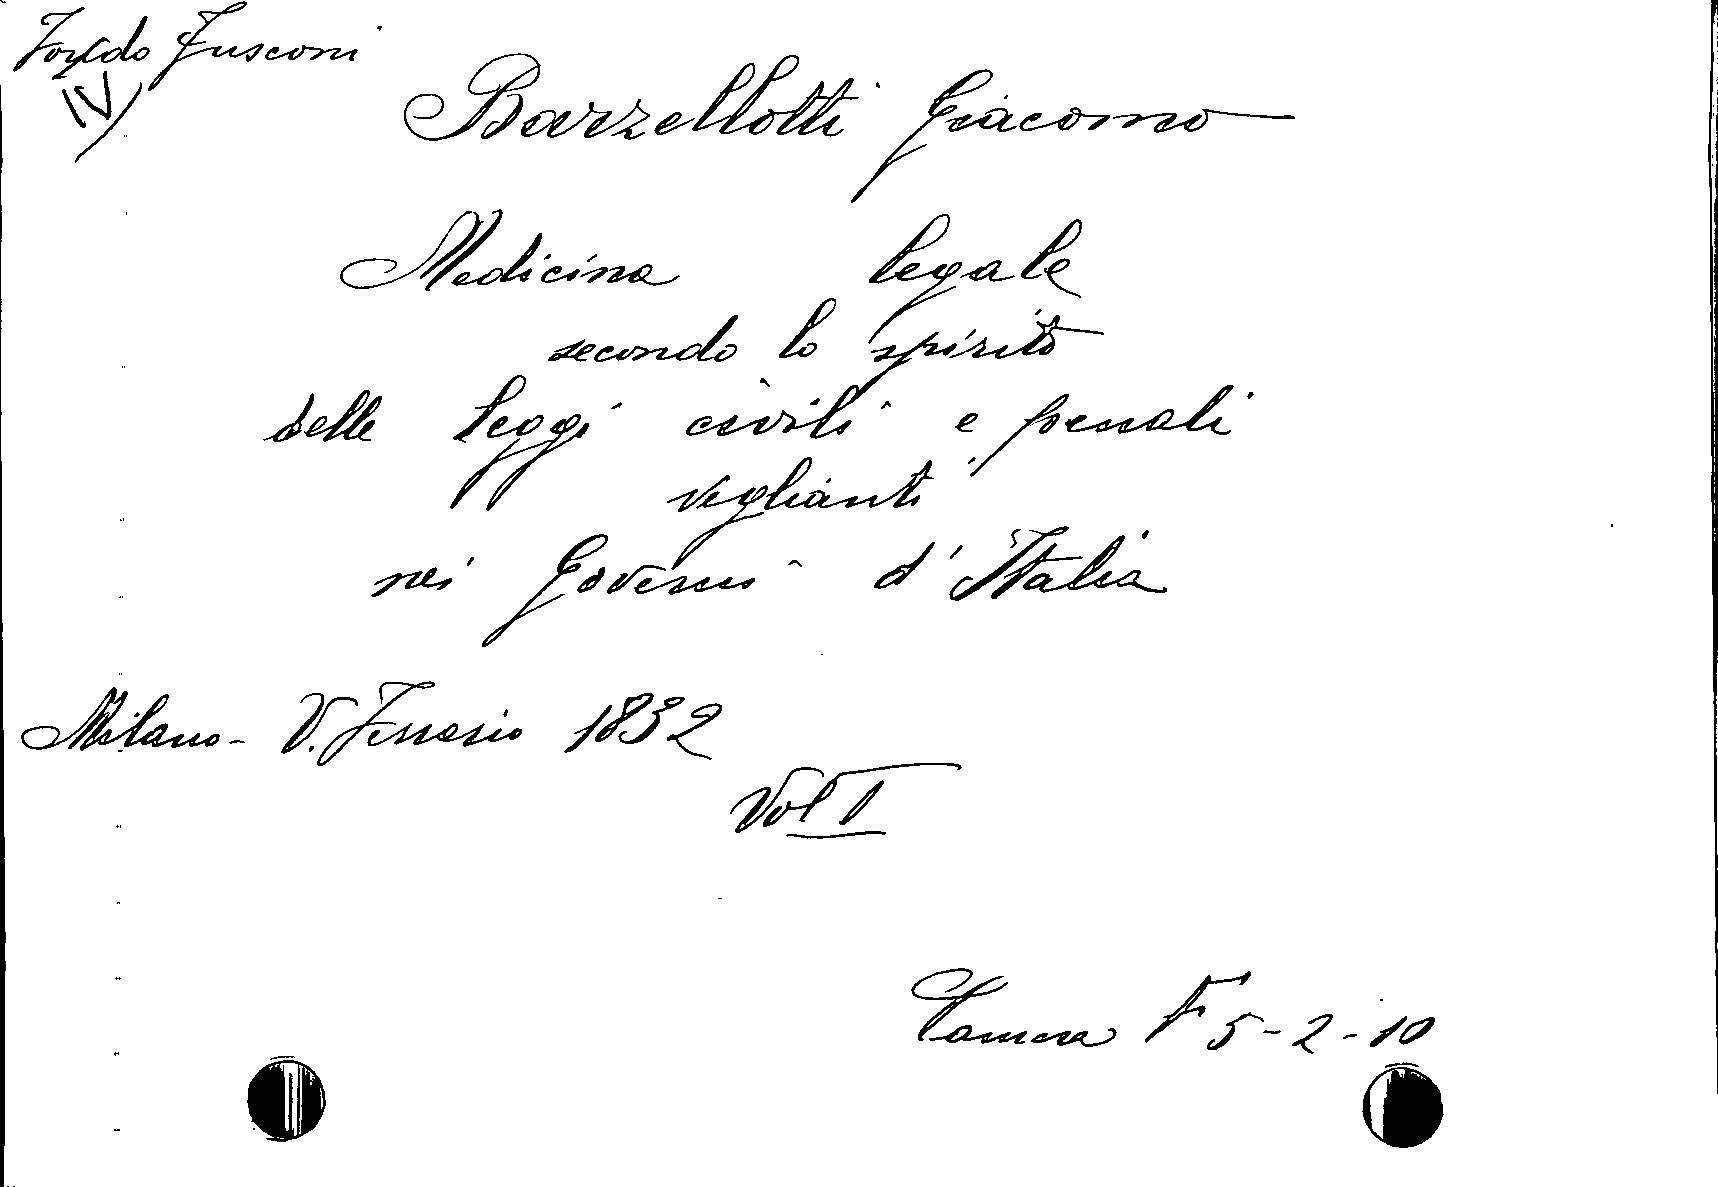 Fondo Fusconi
IV)
Barzellotti Giacomo
Medicina legale
secondo lo spirito
delle leggi civili e penali
veglianti
nei Governi d'Italia
Milano - V. Ferrario 1832
Vol I
Camera F 5-2-10